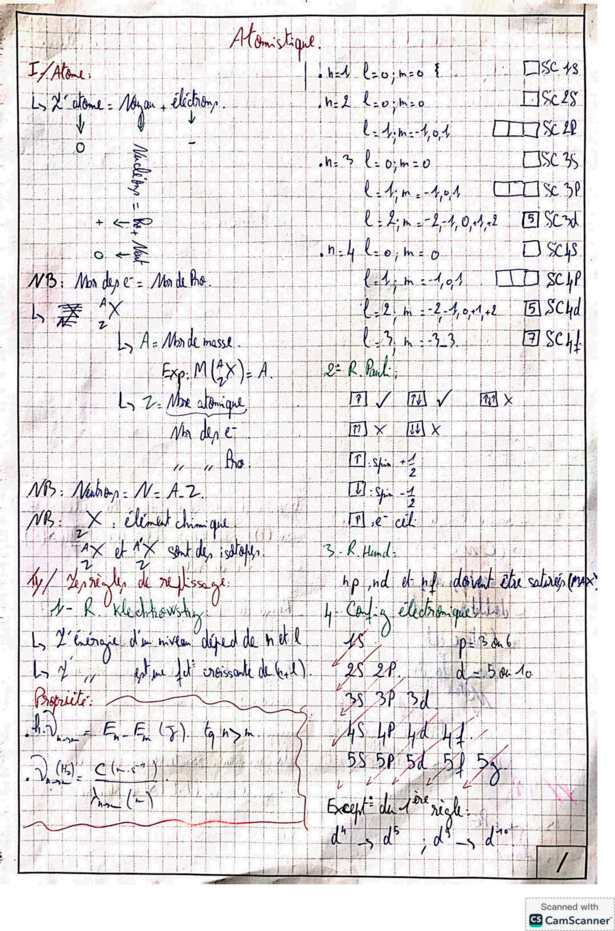 Atomistique.
I/ Atome:
↳ L'atome = Noyau + éléctrons.
↓ ↓ ↓
0 -
Nucléons = Pro + Neut
+ ←
0 ←
NB: Nbr des e⁻ = Nbr de Pro.
↳ ᴬ_Z X
↳ A = Nbr de masse.
Exp: M(ᴬ_Z X) = A.
↳ Z = Nbre atomique
Nbr des e⁻
" " Pro.
NB: Neutrons = N = A-Z.
NB: _Z X : élément chimique
ᴬ_Z X et ᴬ'_Z X sont des isotopes.
II/ Les règles de replissage:
1- R. Klechkowsky:
↳ L'énergie d'un niveau dépend de n et l
↳ L' " est une fct° croissante de (n+l).
Propriété:
. h.ν̄ n→m = En - Em (J). tq n>m.
. ν̄ n→m (Hz) = C (m.s⁻¹) / λ n→m (m)
. n=1 l=0; m=0 { □ SC 1S
. n=2 l=0; m=0 □ SC 2S
l=1; m=-1,0,1 □□□ SC 2P
. n=3 l=0; m=0 □ SC 3S
l=1; m=-1,0,1 □□□ SC 3P
l=2; m=-2,-1,0,+1,+2 5 SC 3d
. n=4 l=0; m=0 □ SC 4S
l=1; m=-1,0,1 □□□ SC 4P
l=2; m=-2,-1,0,+1,+2 5 SC 4d
l=3; m=-3_3. 7 SC 4f.
2= R. Pauli:
↑ ✓ ↑↓ ✓ ↑↓↑ X
↑↑ X ↓↓ X
↑ : spin +1/2
↓ : spin -1/2
↑ : e⁻ cél.
3- R. Hund:
np, nd et nf doivent être saturés (MAX)
4- Config électronique:
1S p = 3 ou 6
2S 2P d = 5 ou 10
3S 3P 3d
4S 4P 4d 4f.
5S 5P 5d 5f 5g.
Except° du 1ère règle:
d⁴ → d⁵ ; d⁹ → d¹⁰
1
Scanned with
CS CamScanner